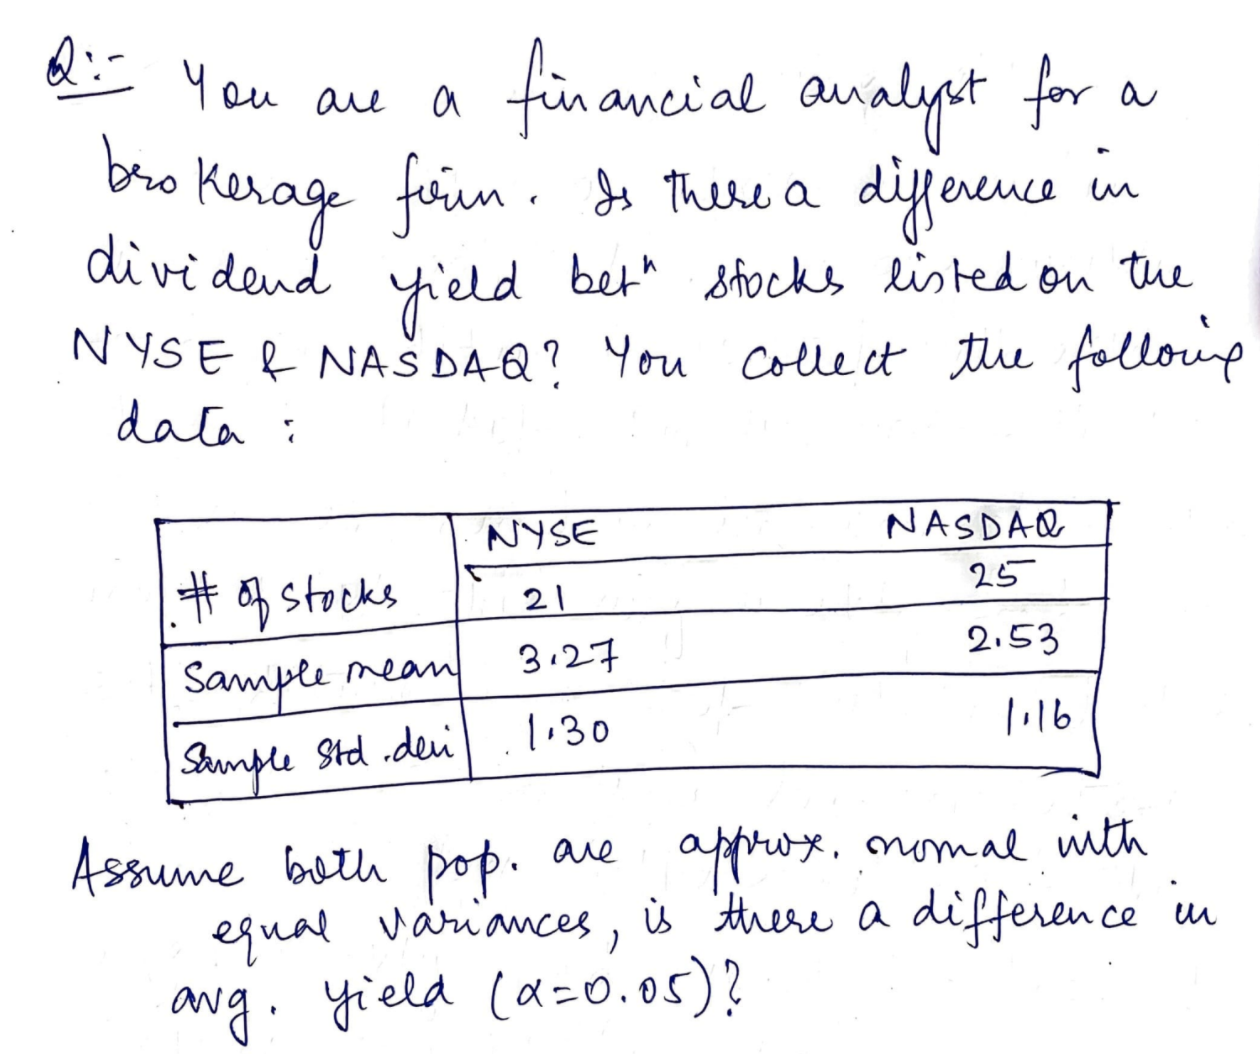 Q:- You are a financial analyst for a
brokerage firm. Is there a difference in
dividend yield betn stocks listed on the
NYSE & NASDAQ? You collect the following
data :
NYSE NASDAQ
# of stocks 21 25
Sample mean 3.27 2.53
Sample std.dev 1.30 1.16
Assume both pop. are approx. normal with
equal variances, is there a difference in
avg. yield (α=0.05)?